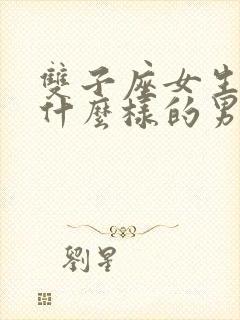 雙子座女生
什麼樣的男
劉星